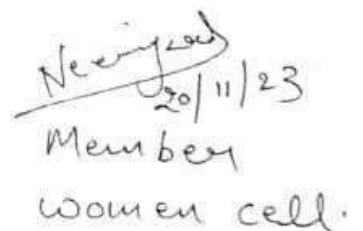 20/11/23
Member
women cell.